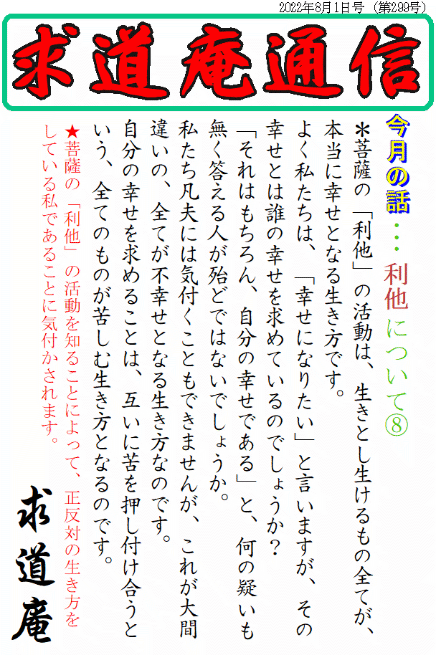 2022年8月1日号（第299号）
求道庵通信
今月の話…利他について⑧
＊菩薩の「利他」の活動は、生きとし生けるもの全てが、
本当に幸せとなる生き方です。
よく私たちは、「幸せになりたい」と言いますが、その
幸せとは誰の幸せを求めているのでしょうか？
「それはもちろん、自分の幸せである」と、何の疑いも
無く答える人が殆どではないでしょうか。
私たち凡夫には気付くこともできませんが、これが大間
違いの、全てが不幸せとなる生き方なのです。
自分の幸せを求めることは、互いに苦を押し付け合うと
いう、全てのものが苦しむ生き方となるのです。
★菩薩の「利他」の活動を知ることによって、正反対の生き方を
している私であることに気付かされます。
求道庵